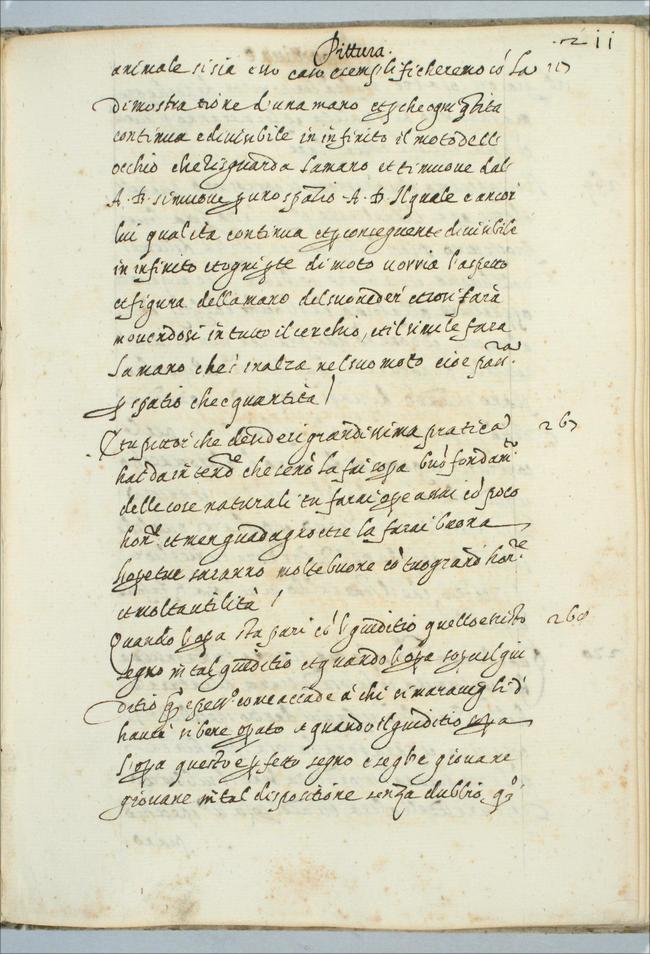 Pittura.
animale si sia e in caso exemplificheremo cō la
dimostratione d'una mano et pche ogni qtita
continua e diuisibile in infinito il moto dell
occhio che risguarda la mano et si muoue dal
A. B. si muoue p uno spatio A. B. Il quale e ancor
lui qualita continua et p conseguente diuisibile
in infinito et ogni pte di moto uarria l'aspetto
et figura della mano nel suo ueder et cosi fara
mouendosi in tutto il cerchio, et il simile fara
la mano che s' inalza nel suo moto cioe
p spatio che e quantità
tu pittor che desideri grandissima pratica 267
hai da intendr che senō la fai sopa buō fondamto
delle cose naturali tu farai ope assai cō poco
honre et men guadagno et se la farai buona
l'ope tue saranno molte buone cō tuo grand' honre
et molta utilità
Quando l'opa sta pari cō l giuditio quello e tristo 268
segno in tal giuditio et quando l'opa sopa il giu
ditio qsto e pessimo come accade à chi si marauiglia d'
hauer si bene opato et quando il giuditio sopa
l'opa questo e pfetto segno e se gli e giouane
giouane in tal dispositione senza dubbio qsto